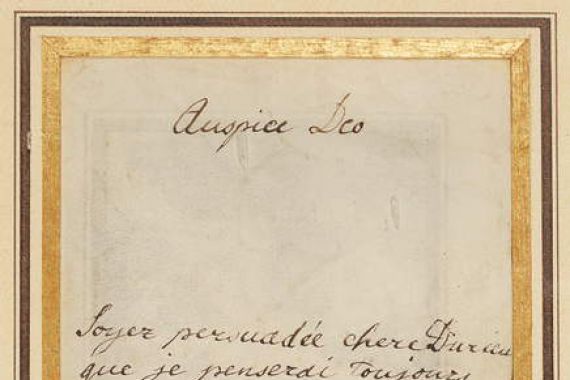 Auspice Deo
Soyez persuadée chere
que je penserai Toujours